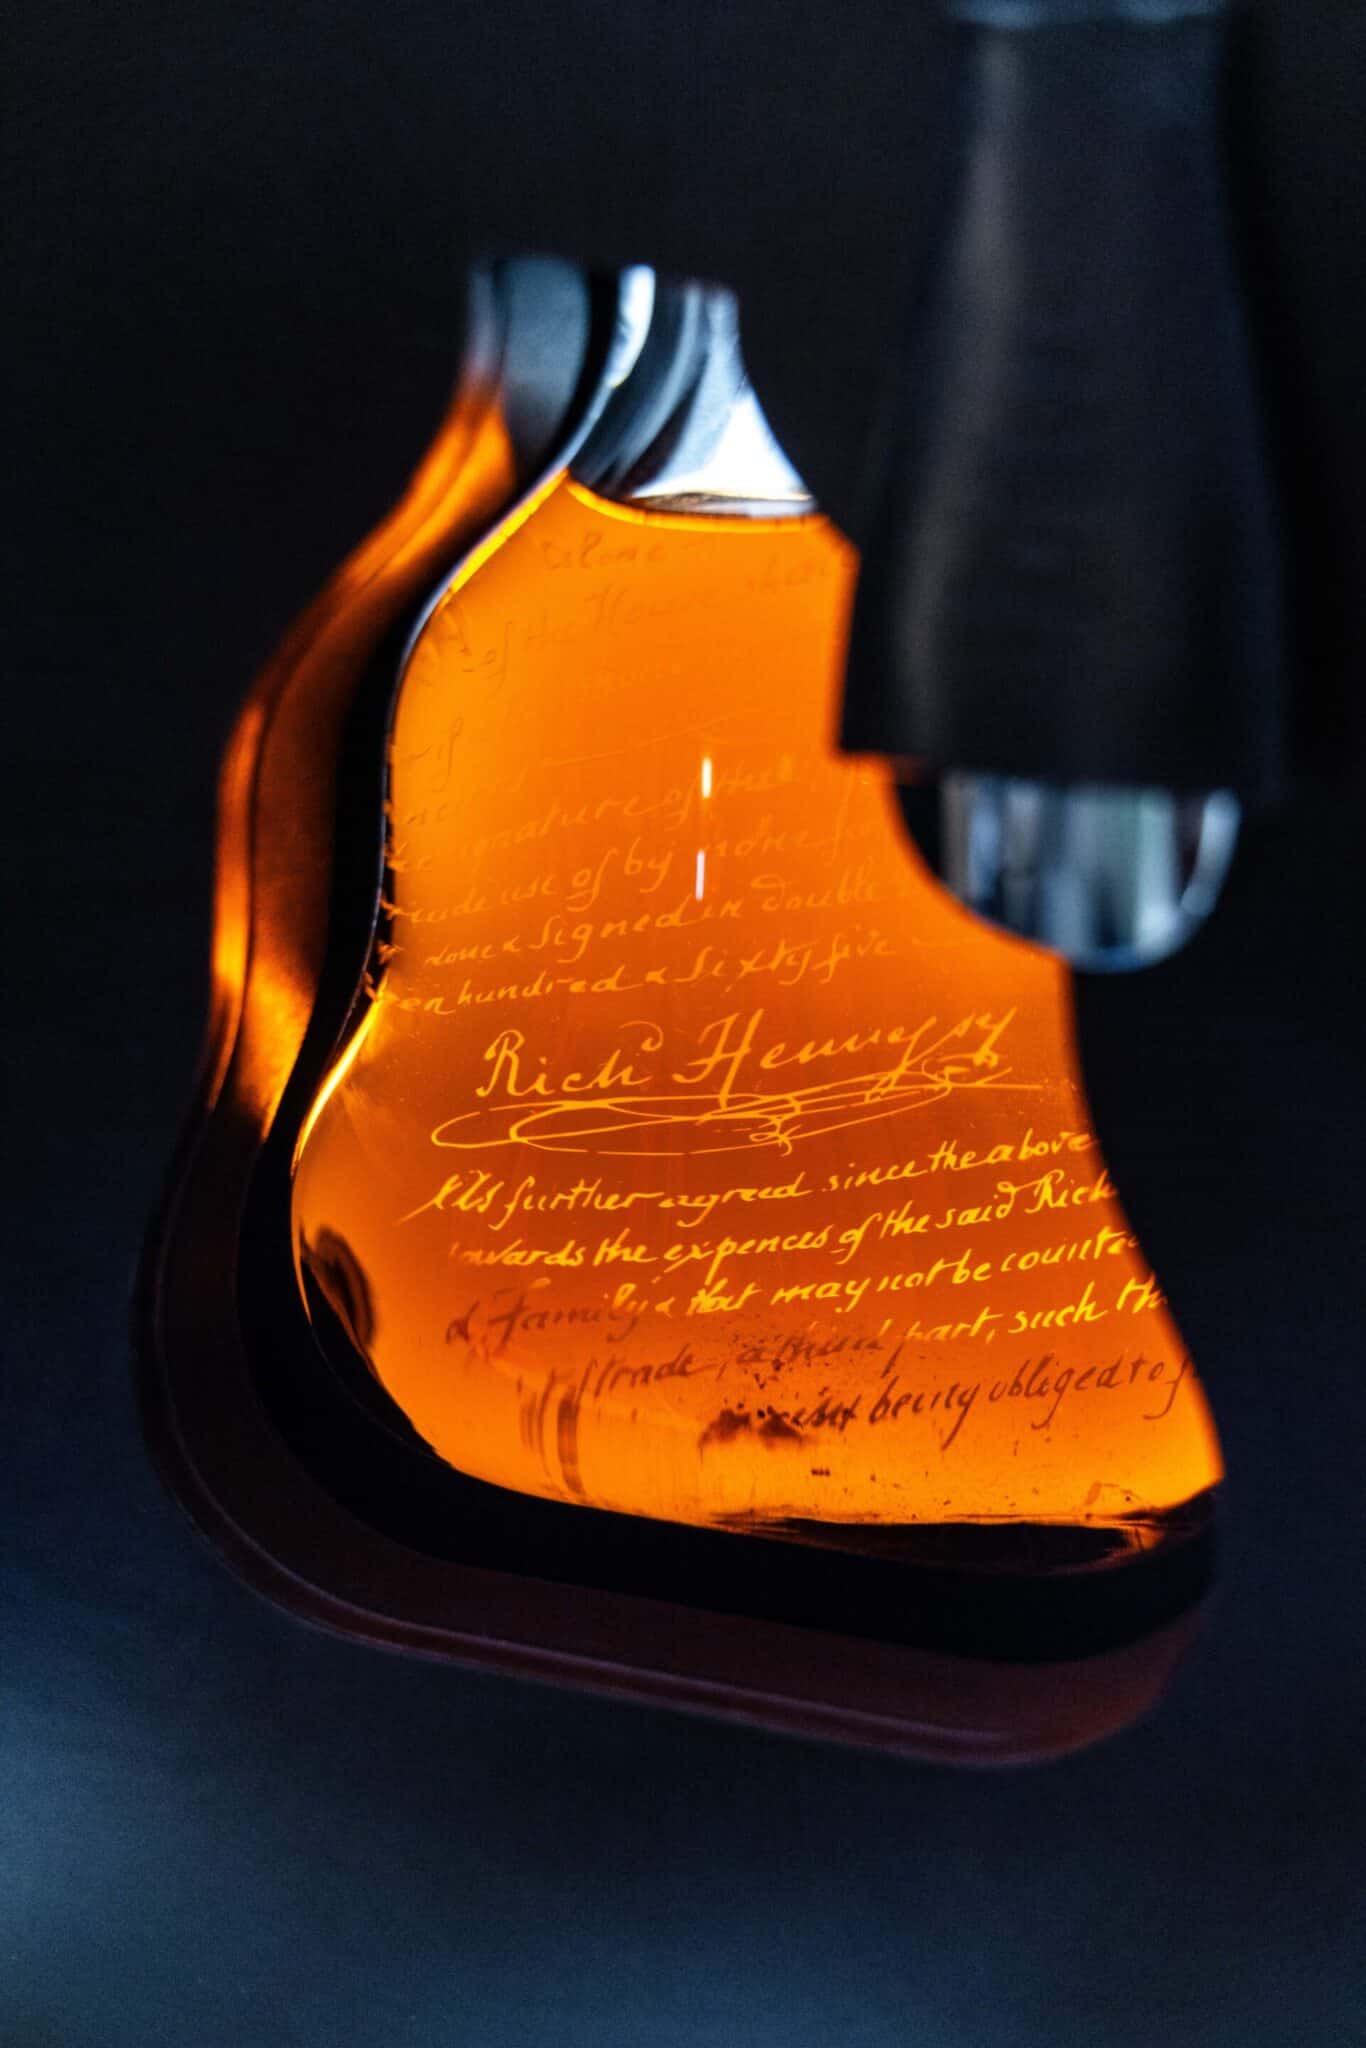 of the House
signature of
made use of by none for
done & Signed in double
en hundred & Sixty five
Rich^d Hennessy
It Is further agreed since the above
towards the expences of the said Rich
& Family & that may not be counte
of trade, a third part, such th
being obliged to